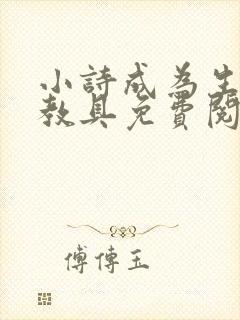 小詩成為生
教具免費閱
傅傳玉